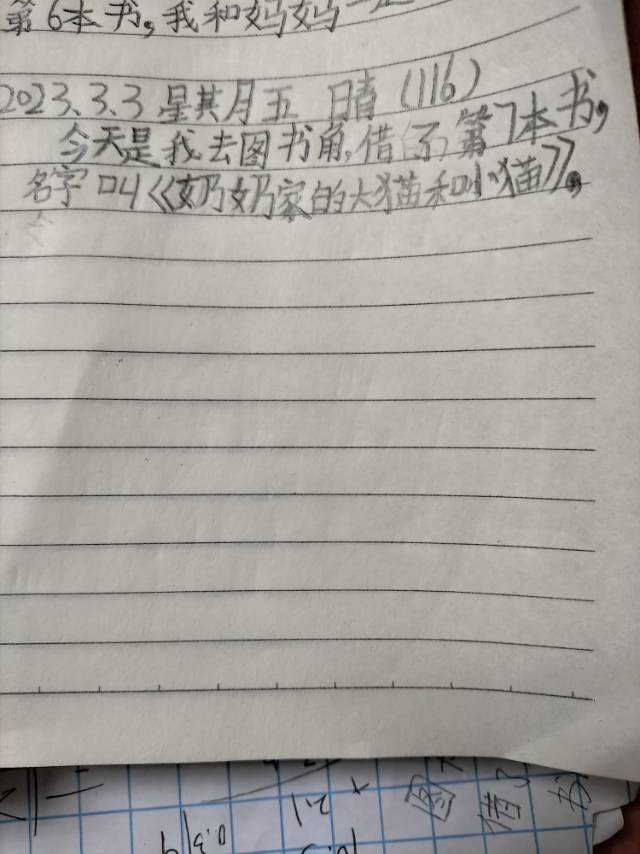 第6本书,我和妈妈一起
2023.3.3 星其月五 晴 (116)
今天是我去图书角,借了第7本书,
名字叫《奶奶家的大猫和小猫》。